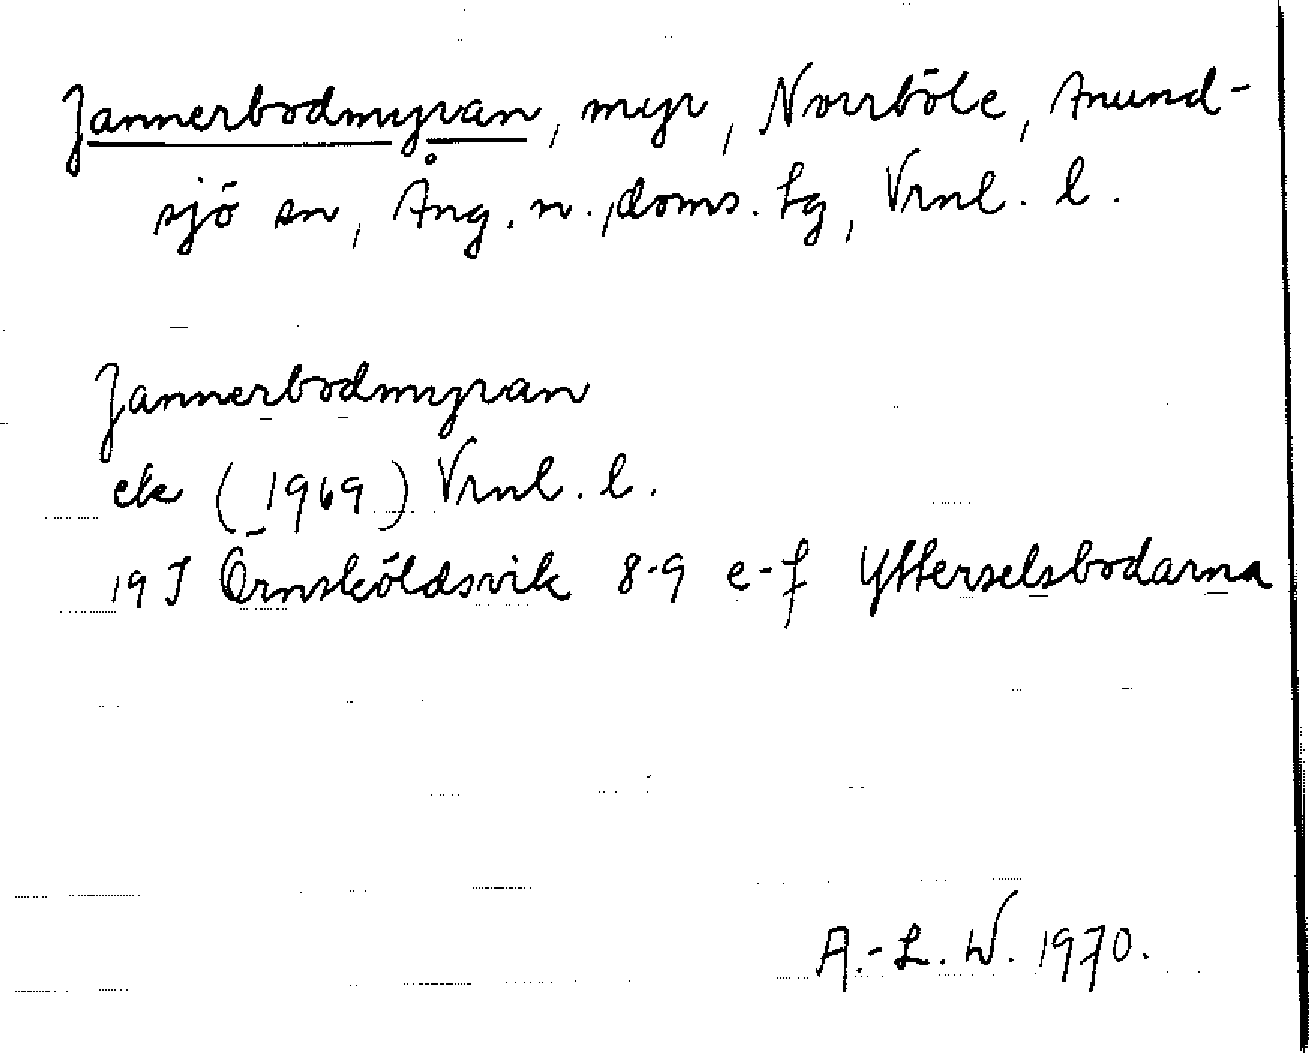 Jannerbodmyran, myr, Norrböle, Anund-
sjö sn, Ång. n., doms. sg, Vrnl. l.
Jannerbodmyran
ek (1969) Vrnl. l.
19 J Örnsköldsvik 8-9 e-f Ytterselsbodarna
A.-L. W. 1970.